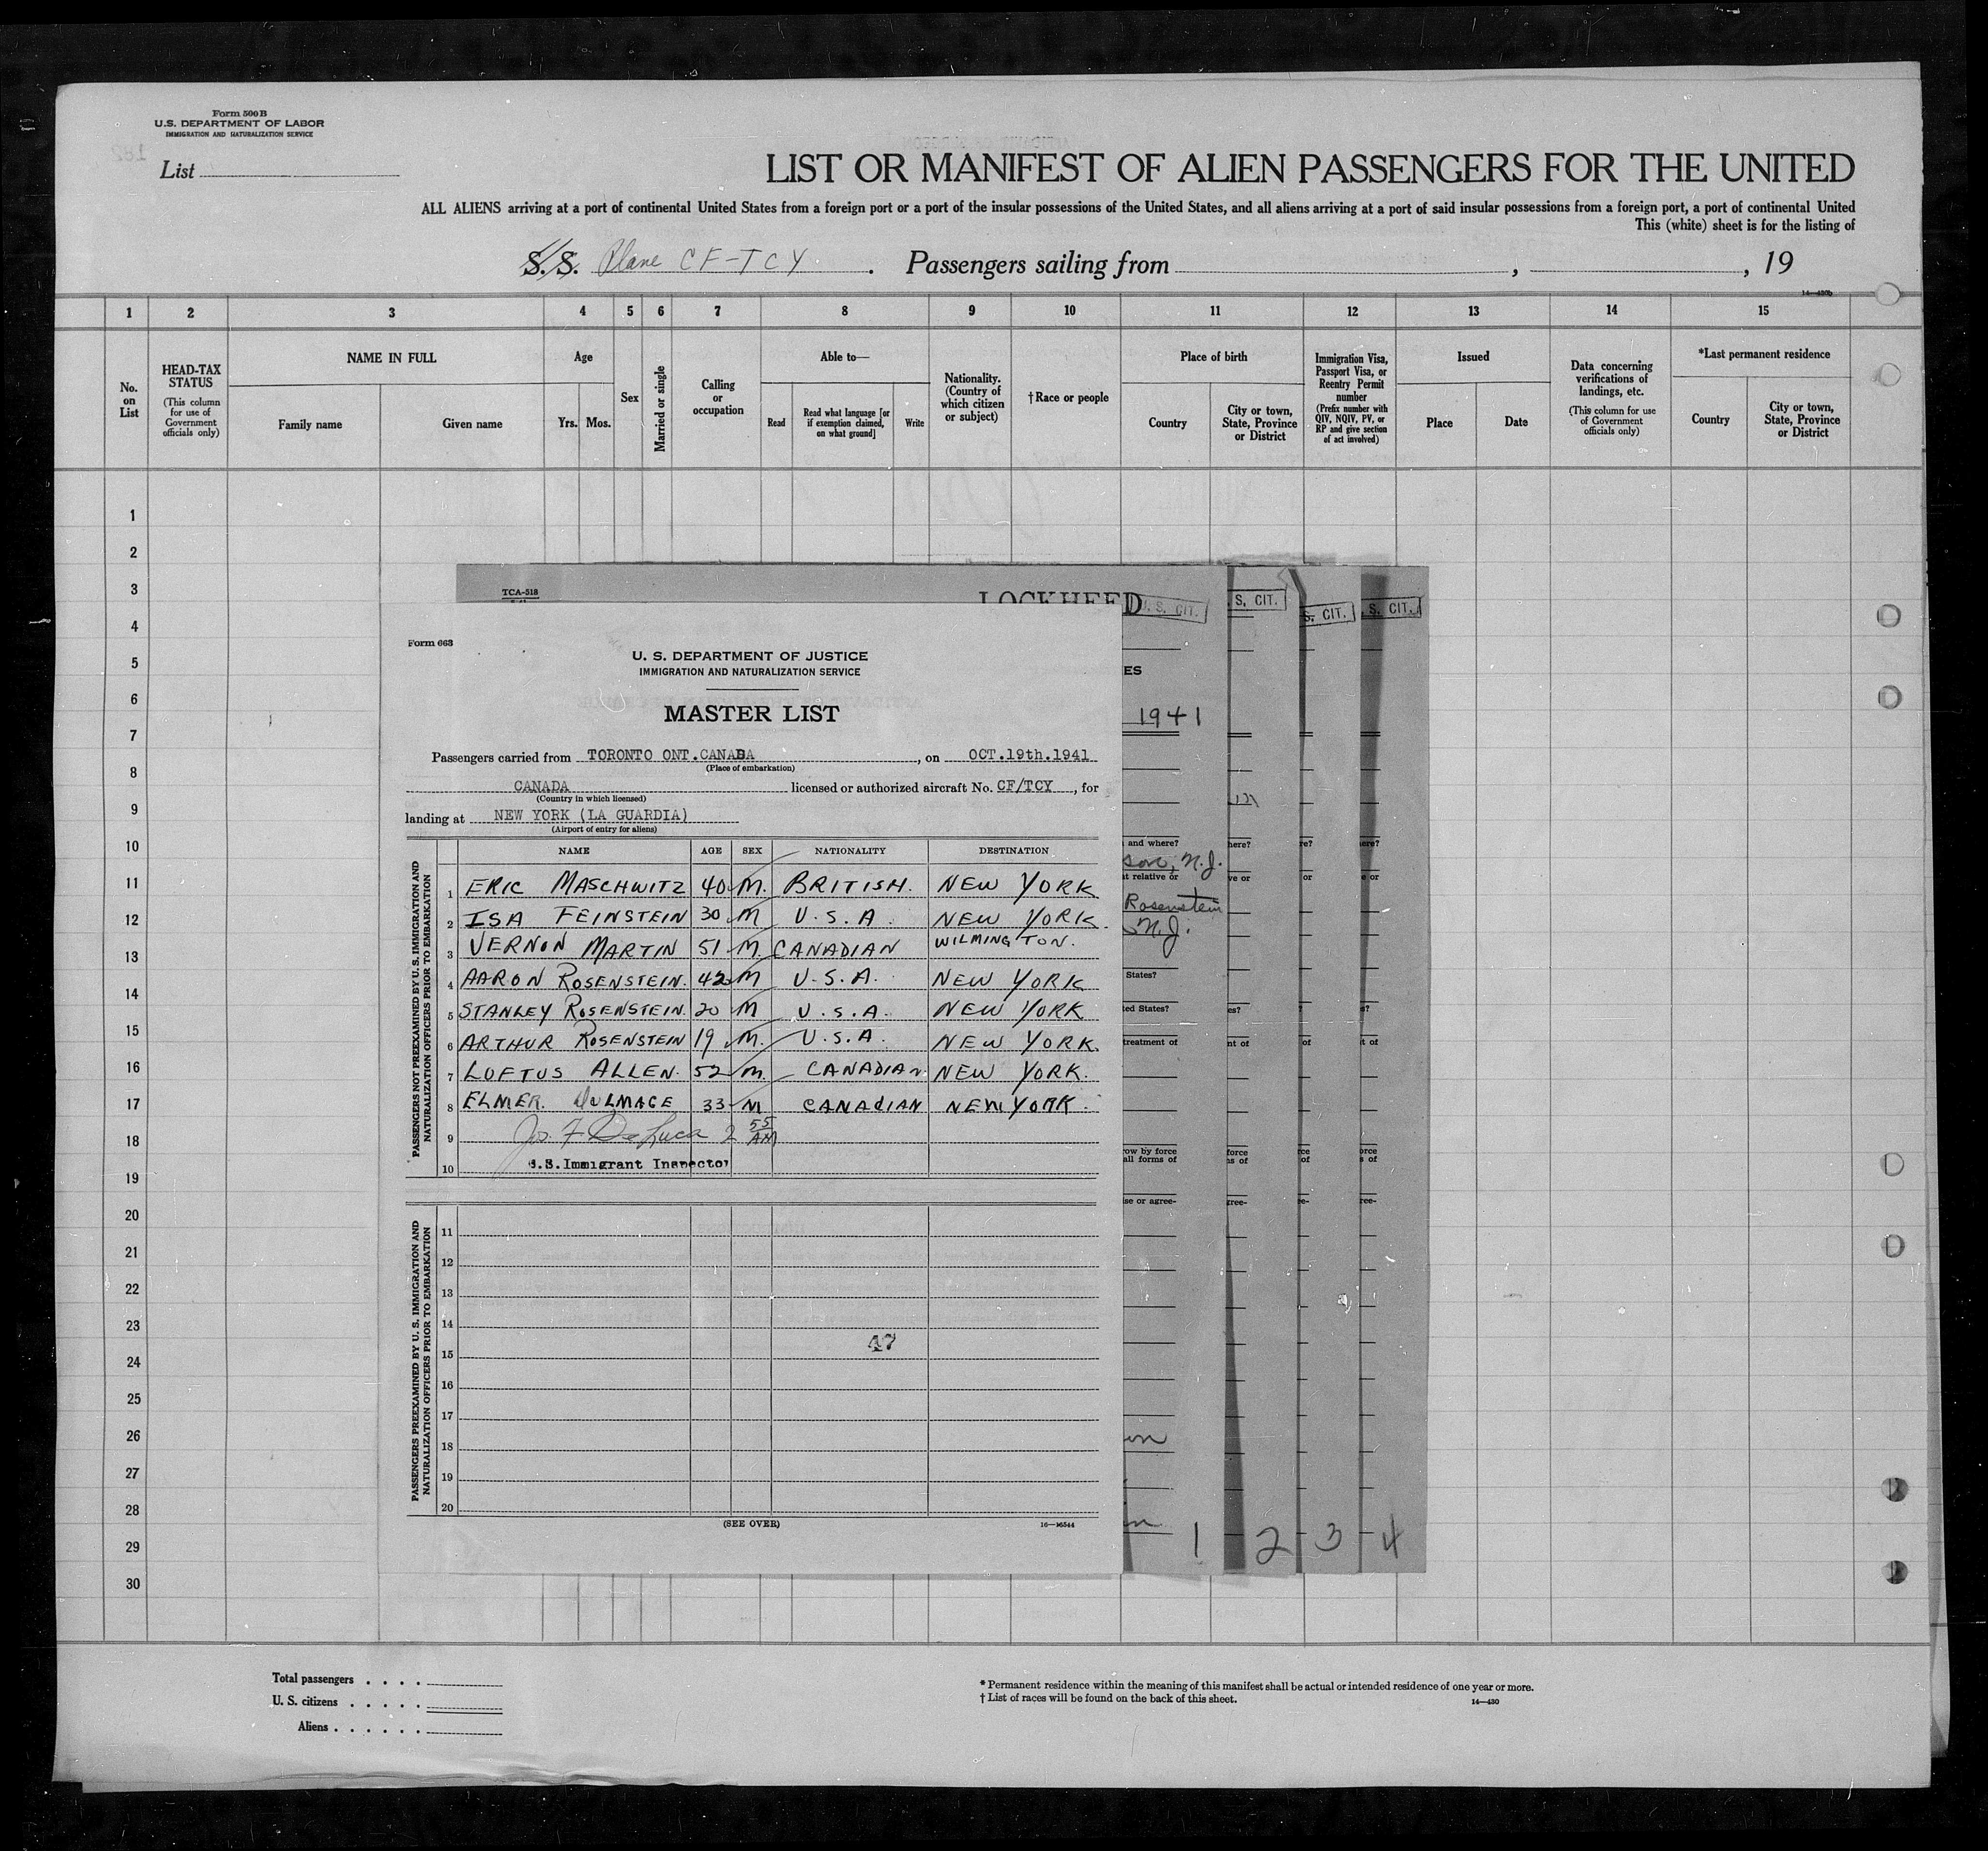 Form 500 B
U.S. DEPARTMENT OF LABOR
IMMIGRATION AND NATURALIZATION SERVICE
List
LIST OR MANIFEST OF ALIEN PASSENGERS FOR THE UNITED
ALL ALIENS arriving at a port of continental United States from a foreign port or a port of the insular possessions of the United States, and all aliens arriving at a port of said insular possessions from a foreign port, a port of continental United
This (white) sheet is for the listing of
S.S. Plane CF-TCY . Passengers sailing from , , 19
14—430b
1 2 3 4 5 6 7 8 9 10 11 12 13 14 15
No. on List
HEAD-TAX STATUS (This column for use of Government officials only)
NAME IN FULL
Family name Given name
Age
Yrs. Mos.
Sex
Married or single
Calling or occupation
Able to—
Read
Read what language [or if exemption claimed, on what ground]
Write
Nationality. (Country of which citizen or subject)
†Race or people
Place of birth
Country
City or town, State, Province or District
Immigration Visa, Passport Visa, or Reentry Permit number (Prefix number with QIV, NQIV, PV, or RP and give section of act involved)
Issued
Place Date
Data concerning verifications of landings, etc. (This column for use of Government officials only)
*Last permanent residence
Country
City or town, State, Province or District
1
2
3
4
5
6
7
8
9
10
11
12
13
14
15
16
17
18
19
20
21
22
23
24
25
26
27
28
29
30
TCA-518
LOCKHEED
U. S. CIT.
S. CIT.
S. CIT.
S. CIT.
Form 663
U. S. DEPARTMENT OF JUSTICE
IMMIGRATION AND NATURALIZATION SERVICE
MASTER LIST
Passengers carried from TORONTO ONT.CANADA , on OCT.19th.1941
(Place of embarkation)
CANADA licensed or authorized aircraft No. CF/TCY , for
(Country in which licensed)
landing at NEW YORK (LA GUARDIA)
(Airport of entry for aliens)
NAME AGE SEX NATIONALITY DESTINATION
PASSENGERS NOT PREEXAMINED BY U. S. IMMIGRATION AND NATURALIZATION OFFICERS PRIOR TO EMBARKATION
1 ERIC MASCHWITZ 40 M. BRITISH. NEW YORK
2 ISA FEINSTEIN 30 M U.S.A. NEW YORK.
3 VERNON MARTIN 51 M. CANADIAN WILMINGTON.
4 AARON ROSENSTEIN. 42 M U.S.A. NEW YORK
5 STANLEY ROSENSTEIN. 20 M U.S.A. NEW YORK
6 ARTHUR ROSENSTEIN 19 M. U.S.A. NEW YORK.
7 LOFTUS ALLEN. 52 M. CANADIAN. NEW YORK.
8 ELMER. DULMAGE 33 M CANADIAN NEW YORK.
9 Jos. F DeLuca 2 55 AM
10 U.S. Immigrant Inspector
PASSENGERS PREEXAMINED BY U. S. IMMIGRATION AND NATURALIZATION OFFICERS PRIOR TO EMBARKATION
11
12
13
14
47
15
16
17
18
19
20
(SEE OVER) 16—16544
ES
1941
and where? here? re? ere?
son, N.J.
at relative or ve or or e or
Rosenstein
N.J.
States?
ted States? es? ? s?
treatment of nt of of t of
row by force force rce orce
all forms of ns of of s of
ise or agree- gree- e- ree-
1 2 3 4
Total passengers . . . .
U. S. citizens . . . . .
Aliens . . . . . .
* Permanent residence within the meaning of this manifest shall be actual or intended residence of one year or more.
† List of races will be found on the back of this sheet.
14—430